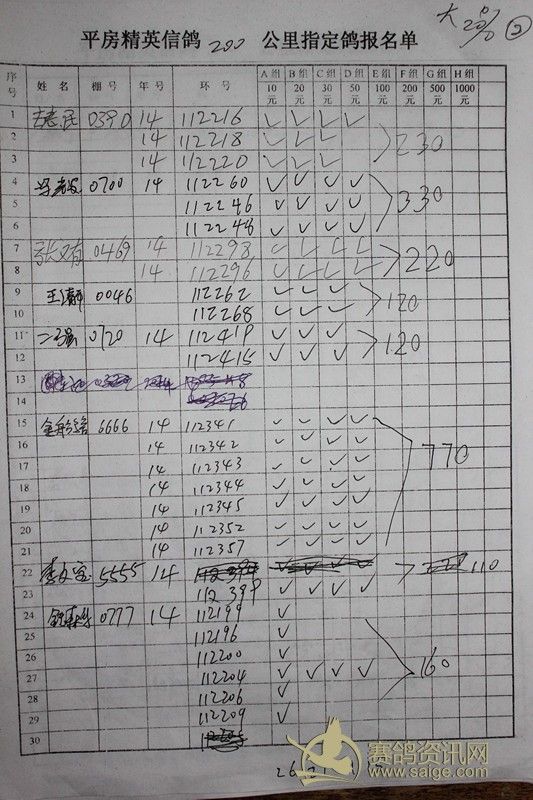 大20% ②
平房精英信鸽 200 公里指定鸽报名单
序号 姓名 棚号 年号 环号 A组10元 B组20元 C组30元 D组50元 E组100元 F组200元 G组500元 H组1000元
1 0390 14 112216 ✓ ✓ ✓ ✓
2 14 112218 ✓ ✓ ✓ 230
3 14 112220 ✓ ✓ ✓
4 0700 14 112260 ✓ ✓ ✓ ✓
5 112246 ✓ ✓ ✓ ✓ 330
6 112248 ✓ ✓ ✓ ✓
7 张文有 0469 14 112298 ✓ ✓ ✓ ✓
8 14 112296 ✓ ✓ ✓ ✓ 220
9 0046 112262 ✓ ✓ ✓
10 112268 ✓ ✓ ✓ 120
11 0720 14 112419 ✓ ✓ ✓
12 112415 ✓ ✓ ✓ 120
13
14
15 6666 14 112341 ✓ ✓ ✓ ✓
16 14 112342 ✓ ✓ ✓ ✓
17 14 112343 ✓ ✓ ✓ ✓ 770
18 14 112344 ✓ ✓ ✓ ✓
19 14 112345 ✓ ✓ ✓ ✓
20 14 112352 ✓ ✓ ✓ ✓
21 14 112357 ✓ ✓ ✓ ✓
22 5555 14 110
23 112399 ✓ ✓ ✓ ✓
24 0777 14 112199 ✓
25 112196 ✓
26 112200 ✓
27 112204 ✓ ✓ ✓ ✓ 160
28 112206 ✓
29 112209 ✓
30
赛鸽资讯网
www.saige.com